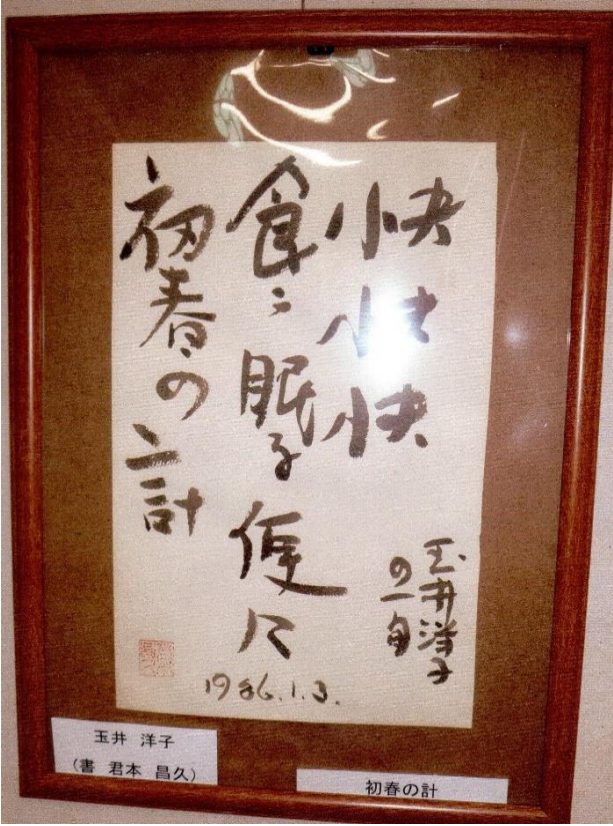 快快快
食 眠 便に
初春の計
玉井洋子
の一句
1986.1.3.
玉井 洋子
(書 君本 昌久)
初春の計